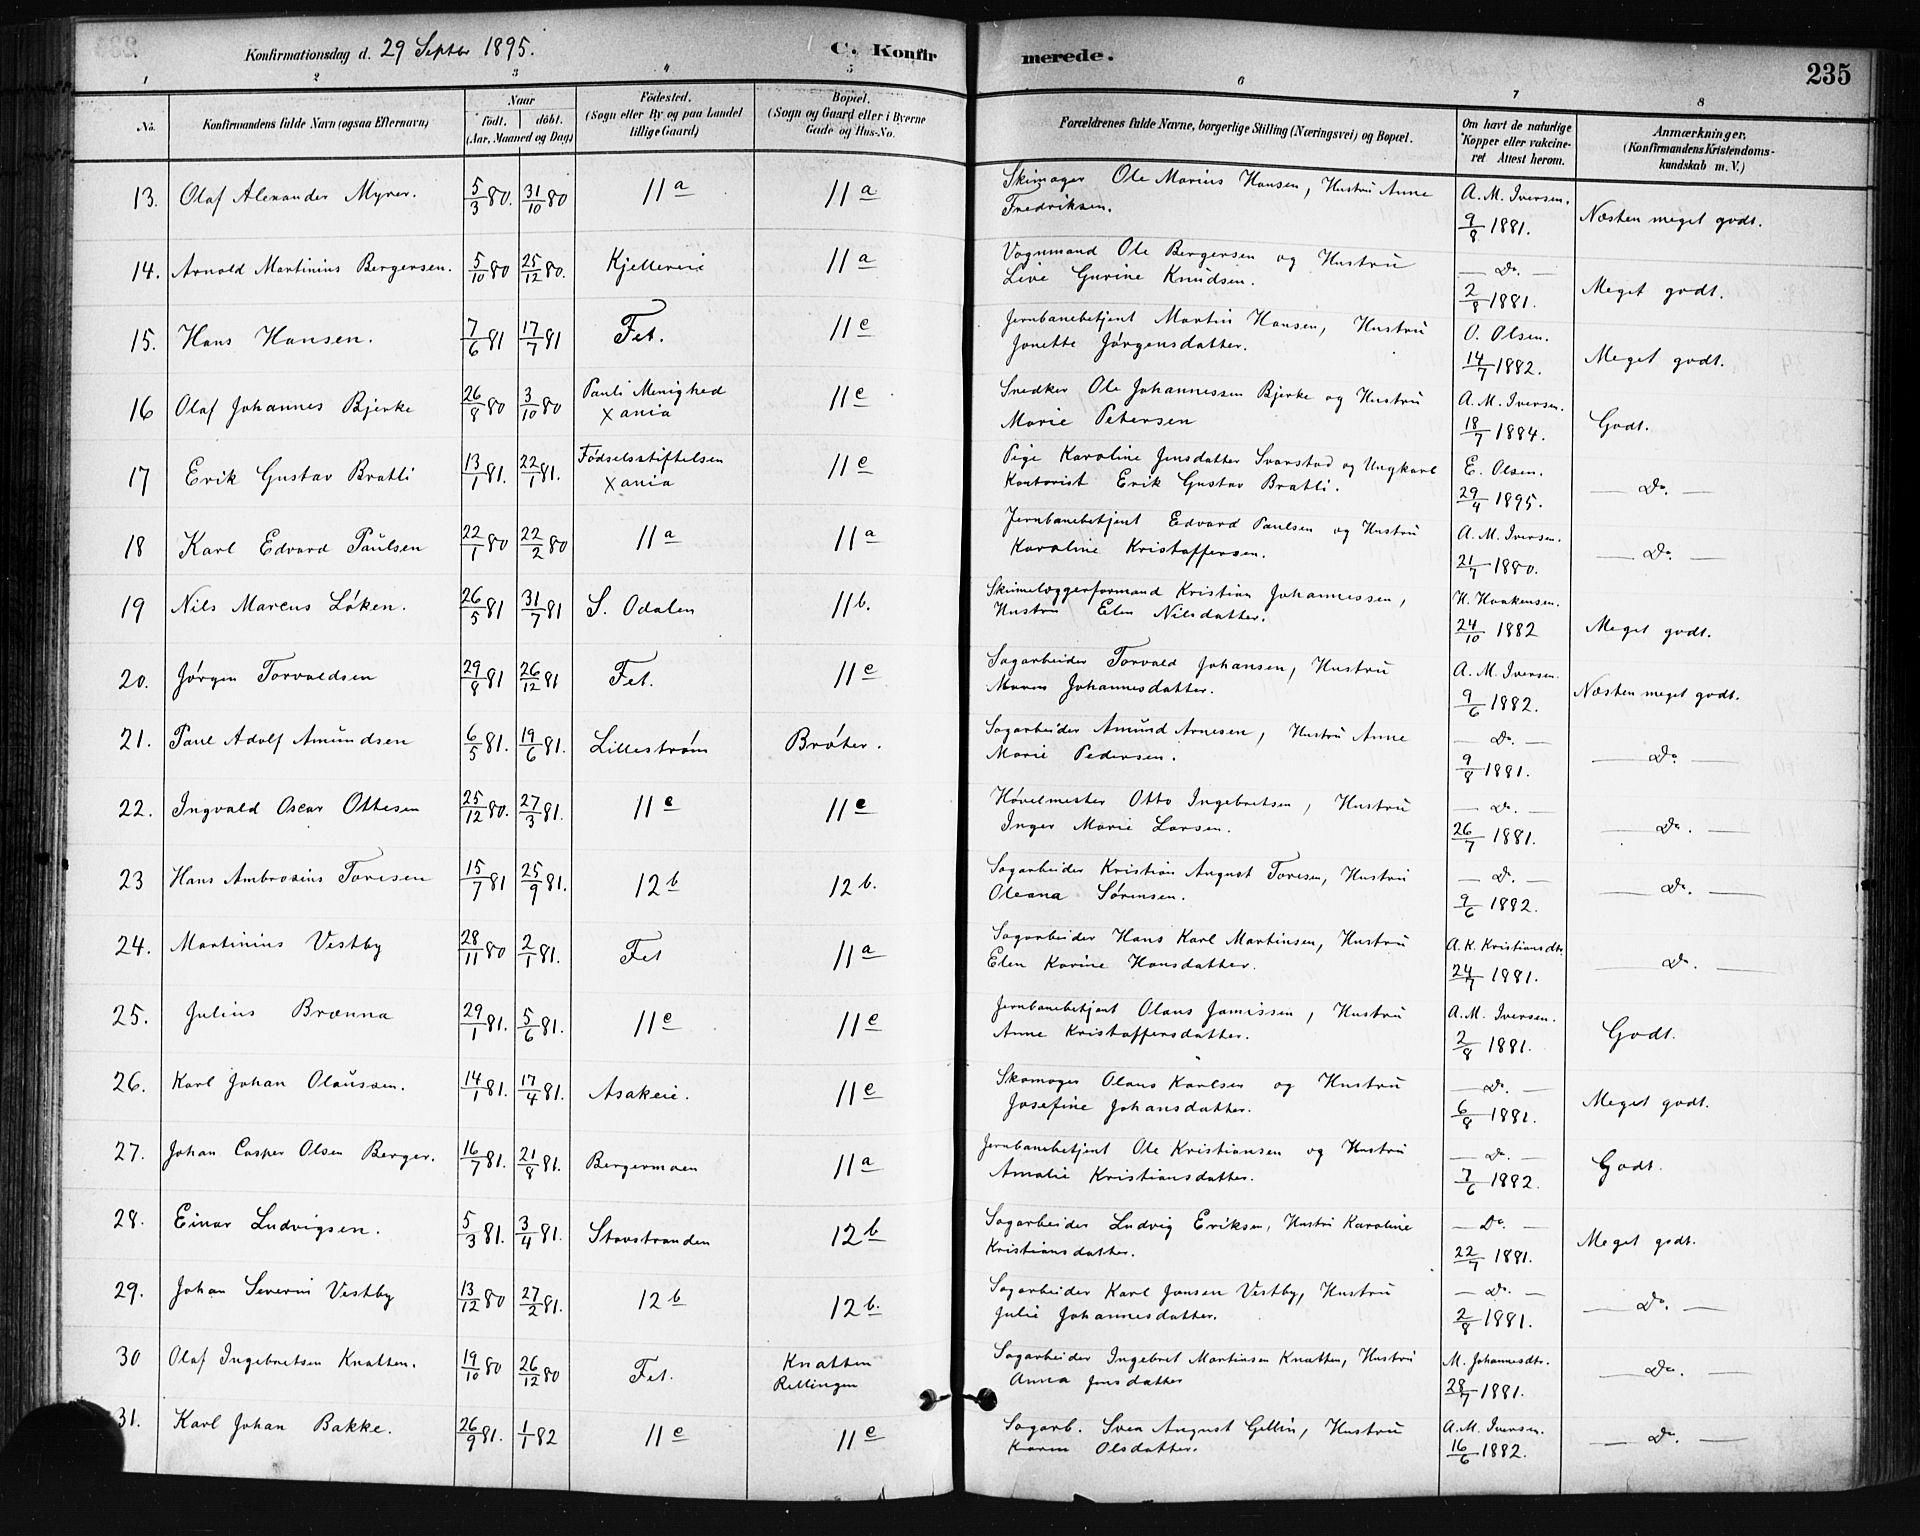 Konfirmationsdag d. 29 Septbr 1895.
C. Konfir
merede.
235
1 2 3 4 5 6 7 8
No.
Konfirmandens fulde Navn (ogsaa Efternavn)
Naar
født. døbt.
(Aar, Maaned og Dag)
Fødested.
(Sogn eller By og paa Landet
tillige Gaard)
Bopæl.
(Sogn og Gaard eller i Byerne
Gade og Hus-No.
Forældrenes fulde Navne, borgerlige Stilling (Næringsvei) og Bopæl.
Om havt de naturlige
Kopper eller vakcine-
ret Attest herom.
Anmærkninger.
(Konfirmandens Kristendoms-
kundskab m. V.)
13. Olaf Alexander Myrer. 5/3 80. 31/10 80 11a 11a Skimager Ole Marius Hansen, Hustru Anne
Fredriksen. A. M. Iversen. 9/8 1881. Næsten meget godt.
14. Arnold Martinius Bergersen. 5/10 80 25/12 80. Kjellereie 11a Vognmand Ole Bergersen og Hustru
Live Gurine Knudsen. — Do. — 2/8 1881. Meget godt.
15. Hans Hansen. 7/6 81 17/7 81 Fet. 11e Jernbanebetjent Martin Hansen, Hustru
Jonette Jørgensdatter. O. Olsen. 14/7 1882. Meget godt.
16 Olaf Johannes Bjerke 26/8 80 3/10 80 Pauli Menighed
Xania 11e Snedker Ole Johannessen Bjerke og Hustru
Marie Petersen A. M. Iversen. 18/7 1884. Godt.
17 Erik Gustav Bratli 13/1 81. 22/1 81. Fødselsstiftelsen
Xania 11e Pige Karoline Jensdatter Svarstad og Ungkarl
Kontorist Erik Gustav Bratli. E. Olsen. 29/4 1895. — Do. —
18 Karl Edvard Paulsen 22/1 80 22/2 80 11a 11a Jernbanebetjent Edvard Paulsen og Hustru
Karoline Kristoffersen. A. M. Iversen. 21/7 1880. — Do. —
19 Nils Marcus Løken. 26/5 81 31/7 81 S. Odalen 11b. Skinnelæggerformand Kristian Johannessen,
Hustru Elen Nilsdatter. H. Haakensen. 24/10 1882 Meget godt.
20. Jørgen Torvaldsen 29/8 81 26/12 81 Fet. 11e Sagarbeider Torvald Johansen, Hustru
Maren Johannesdatter. A. M. Iversen. 9/6 1882. Næsten meget godt.
21. Paul Adolf Amundsen 6/5 81. 19/6 81. Lillestrøm Brøter. Sagarbeider Amund Arnesen, Hustru Anne
Marie Pedersen. — Do. — 9/8 1881. — Do. —
22. Ingvald Oscar Ottesen 25/12 80. 27/3 81. 11e 11e Høvelmester Otto Ingebretsen, Hustru
Inger Marie Larsen. — Do. — 26/7 1881. — Do. —
23 Hans Ambrosius Toresen 15/7 81 25/9 81. 12b 12b. Sagarbeider Kristian August Toresen, Hustru
Oleana Sørensen. — Do. — 9/6 1882. — Do. —
24. Martinius Vestby 28/11 80 2/1 81. Fet 11a Sagarbeider Hans Karl Martinsen, Hustru
Elen Karine Hansdatter. A. K. Kristiansdtr. 24/7 1881. — Do. —
25. Julius Brænna 29/1 81. 5/6 81. 11e 11e Jernbanebetjent Olaus Jamissen, Hustru
Anne Kristoffersdatter. A. M. Iversen. 2/8 1881. Godt.
26. Karl Johan Olaussen. 14/1 81. 17/4 81. Asakeie. 11e Skomager Olaus Karlsen og Hustru
Josefine Johansdatter. — Do. — 6/8 1881. Meget godt.
27. Johan Casper Olsen Berger. 16/7 81. 21/8 81. Bergermoen 11a Jernbanebetjent Ole Kristiansen og Hustru
Amalie Kristiansdatter. — Do. — 7/6 1882. Godt.
28. Einar Ludvigsen. 5/3 81. 3/4 81. Stavstranden 12b Sagarbeider Ludvig Eriksen, Hustru Karoline
Kristiansdatter. — Do. — 22/7 1881. Meget godt.
29. Johan Severin Vestby 13/12 80 27/2 81. 12b 12b. Sagarbeider Karl Jansen Vestby, Hustru
Julie Johannesdatter. — Do. — 2/8 1881. — Do. —
30 Olaf Ingebretsen Knatten. 19/10 80 26/12 80 Fet. Knatten
Rellingen Sagarbeider Ingebret Martinsen Knatten, Hustru
Anna Jensdatter M. Johannesdtr. 28/7 1881. — Do. —
31. Karl Johan Bakke. 26/9 81. 1/1 82 11e 11e Sagarb. Sven August Gellin, Hustru
Karen Olsdatter. A. M. Iversen. 16/6 1882. — Do. —